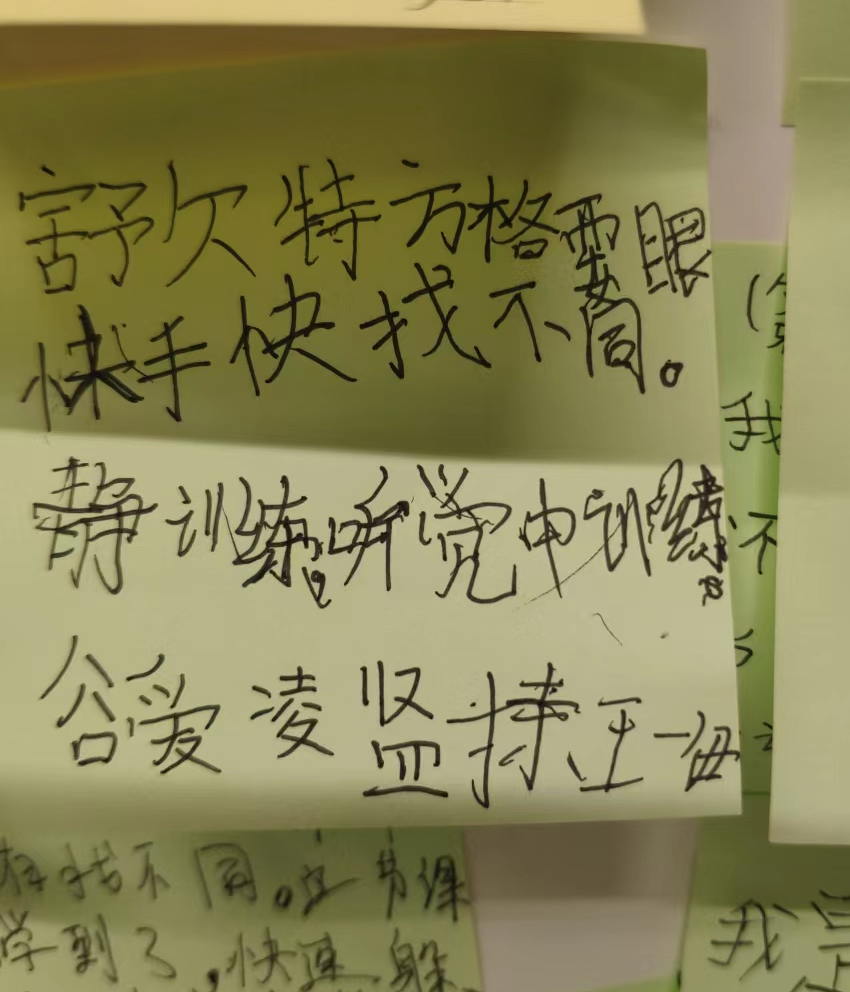 舒欠特方格需眼
快手快找不同。
静训练。听觉中训练。
谷爱凌坚持王一每
找不同。这节课
学到了，快速躲
我
不
我是